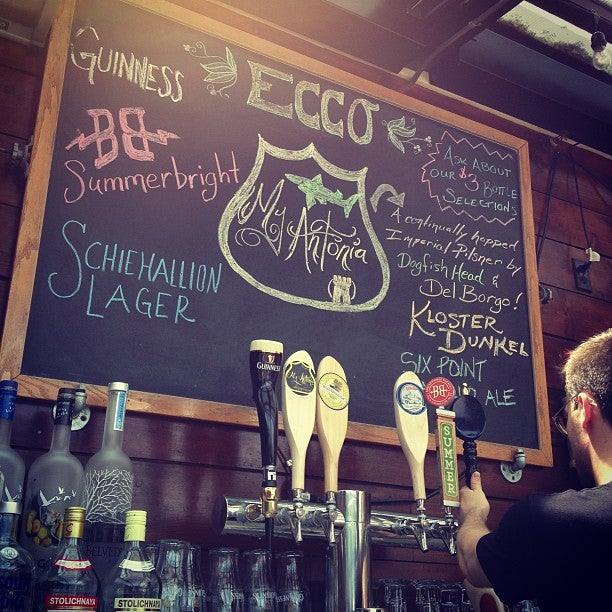 GUINNESS
ECCO
BB
Summerbright
SCHIEHALLION
LAGER
My Antonia
ASK ABOUT
OUR $3 BOTTLE
SELECTIONS
A continually hopped
Imperial Pilsner by
Dogfish Head &
Del Borgo!
KLOSTER
DUNKEL
SIX POINT
ALE
GUINNESS
My Antonia
BB
SUMMER
BELVEDE
STOLICHNAYA
STOLICHNAYA